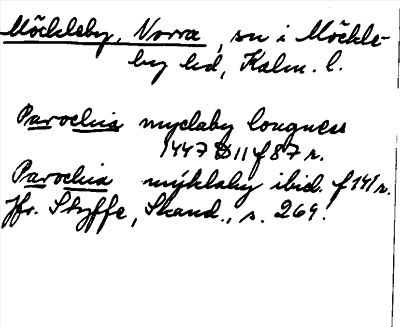 Möckleby, Norra, sn i Möckle-
by hd, Kalm. l.
Parochia myclaby longness
1447 D 11 f 87 r.
Parochia mýklaby ibid. f 141 r.
Jfr. Styffe, Skand., s. 269.